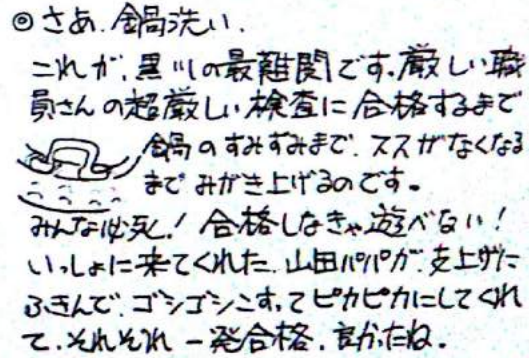 ◎さあ、鍋洗い、
これが、黒川の最難関です。厳しい職
員さんの超厳しい検査に合格するまで
鍋のすみずみまで、ススがなくなる
までみがき上げるのです。
みんな必死！合格しなきゃ遊べない！
いっしょに来てくれた、山田パパが、
ふきんで、ゴシゴシこすってピカピカにしてくれ
て、それぞれ一発合格、良かたね。